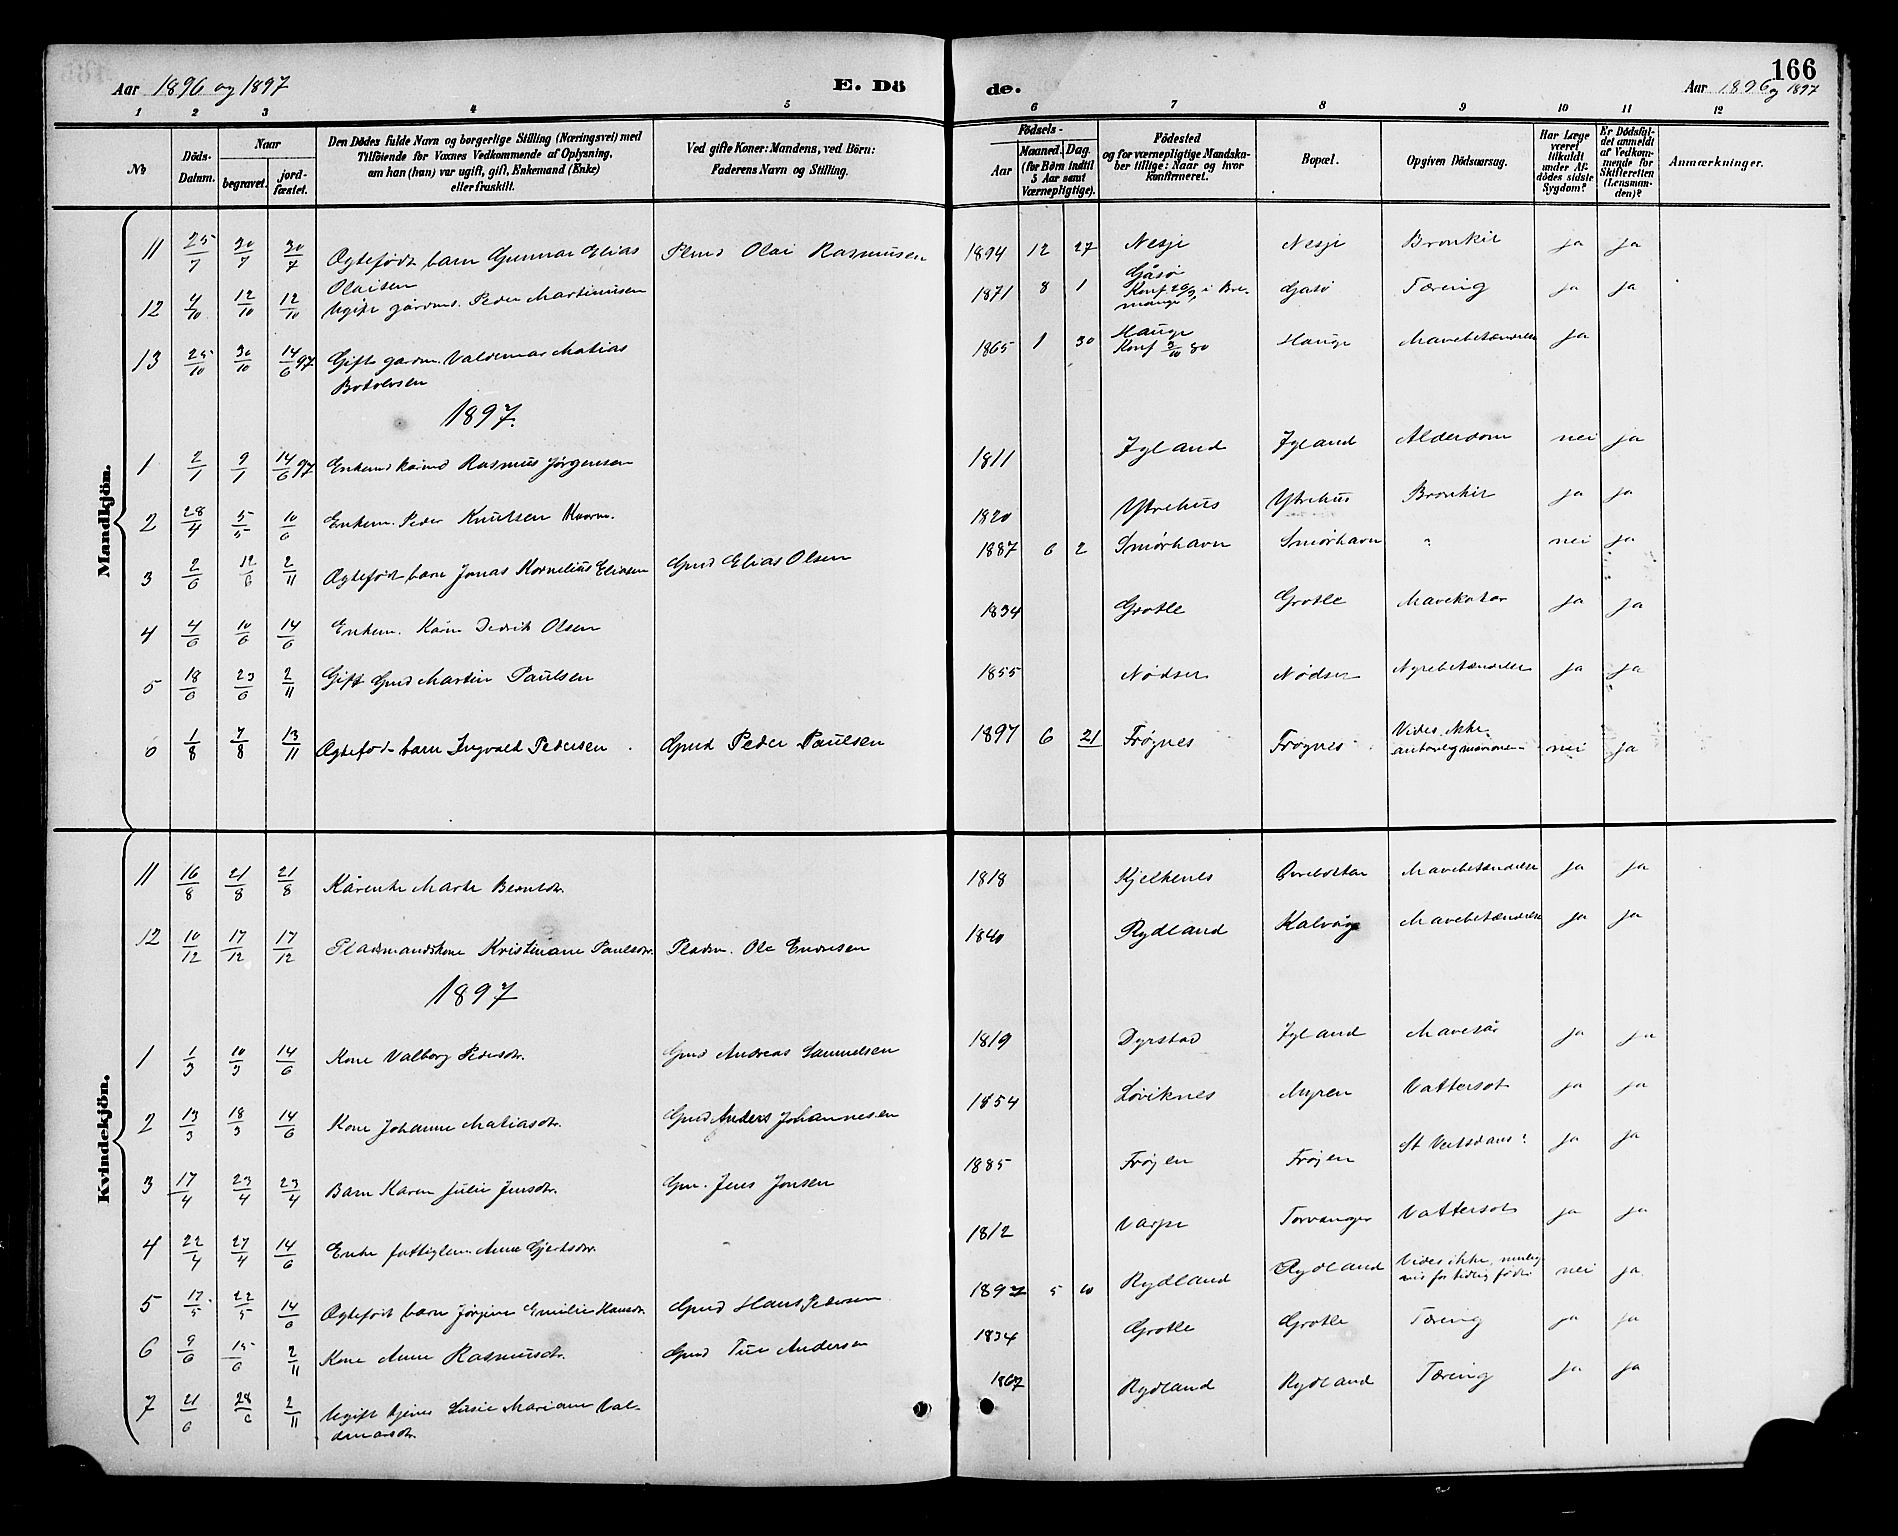 Aar 1896 og 1897
E. Dö
de.
166
Aar 1896 og 1897
1 2 3 4 5 6 7 8 9 10 11 12
No
Döds-Datum.
Naar
begravet.
jord-fæstet.
Den Dödes fulde Navn og borgerlige Stilling (Næringsvei) med
Tilföiende for Voxnes Vedkommende af Oplysning,
om han (hun) var ugift, gift, Enkemand (Enke)
eller fraskilt.
Ved gifte Koner: Mandens, ved Börn:
Faderens Navn og Stilling.
Födsels-
Aar
Maaned. Dag.
(for Börn indtil
5 Aar samt
Værnepligtige).
Födested
og for værnepligtige Mandska-
ber tillige: Naar og hvor
konfirmeret.
Bopæl.
Opgiven Dödsaarsag.
Har Læge
været
tilkaldt
under Af-
dödes sidste
Sygdom?
Er Dödsfal-
det anmeldt
af Vedkom-
mende for
Skifteretten
(Lensman-
den)?
Anmærkninger.
Mandkjön.
11 25/7 30/7 30/7 Ægtefødt barn Gunnar Elias Olaisen Plmd Olai Rasmusen 1894 12 27 Nesje Nesje Bronkit ja ja
12 4/10 12/10 12/10 Ugift gårdm. Peder Martinusen 1871 8 1 Gåsø Konf i Bremanger Gåsø Tæring ja ja
13 25/10 30/10 14/6 97 Gift gårdm. Valdemar Matias Botolvsen 1865 1 30 Hauge Konf 3/10 80 Hauge Mavebetændelse ja
1897.
1 2/1 9/1 14/6 97 Enkem kårmd Rasmus Jørgensen 1811 Igland Igland Alderdom nei ja
2 28/4 5/5 10/6 Enkem. Peder Knutsen 1820 Ytrehus Ytrehus Bronkit ja ja
3 2/6 12/6 2/11 Ægtefødt barn Jonas Kornelius Eliasen Gmd Elias Olsen 1887 6 2 Smørhavn Smørhavn ? nei ja
4 4/6 10/6 14/6 Enkem. Kårm Didrik Olsen 1834 Grotle Grotle Mavekatar ja ja
5 18/6 23/6 2/11 Gift Gmd Martin Paulsen 1855 Nødset Nødset Nyrebetændelse ja ja
6 1/8 7/8 13/11 Ægtefødt barn Ingvald Pedersen Gmd Peder Paulsen 1897 6 21 Frøynes Frøynes Vides ikke nei ja
Kvindekjön.
11 16/8 21/8 21/8 Kårenke Marte Berntsdr. 1818 Kjelkenes Mavebetændelse ja ja
12 10/12 17/12 17/12 Pladsmandskone Kristiane Paulsdr. Pladsm. Ole Endresen 1840 Rydland Kalvåg Mavebetændelse ja ja
1897
1 1/3 10/3 14/6 Kone Valborg Pedersdr. Gmd Andreas Samuelsen 1819 Dyrstad Igland Mavesår ja ja
2 13/3 18/3 14/6 Kone Johanne Matiasdr. Gmd Anders Johannesen 1854 Løviknes Myren Vattersot ja ja
3 17/4 23/4 23/4 Barn Karen Julie Jensdr. Gm. Jens Jonsen 1885 Frøyen Frøyen St Veitsdans? ja ja
4 22/4 27/4 14/6 Enke fattiglem Anne Gjertsdr. 1812 Varpe Torvanger Vattersot ja ja
5 17/5 22/5 14/6 Ægtefødt barn Jørgine Emilie Hansdr. Gmd Hans Pedersen 1897 5 10 Rydland Rydland Vides ikke, mulig- vis for tidlig født nei ja
6 9/6 15/6 2/11 Kone Anne Rasmusdr. Gmd Tue Andersen 1834 Grotle Grotle Tæring ja ja
7 21/6 28/6 2/11 Ugift tjener Lisie Mariane Valdmarsdr. 1867 Rydland Rydland Tæring ja ja